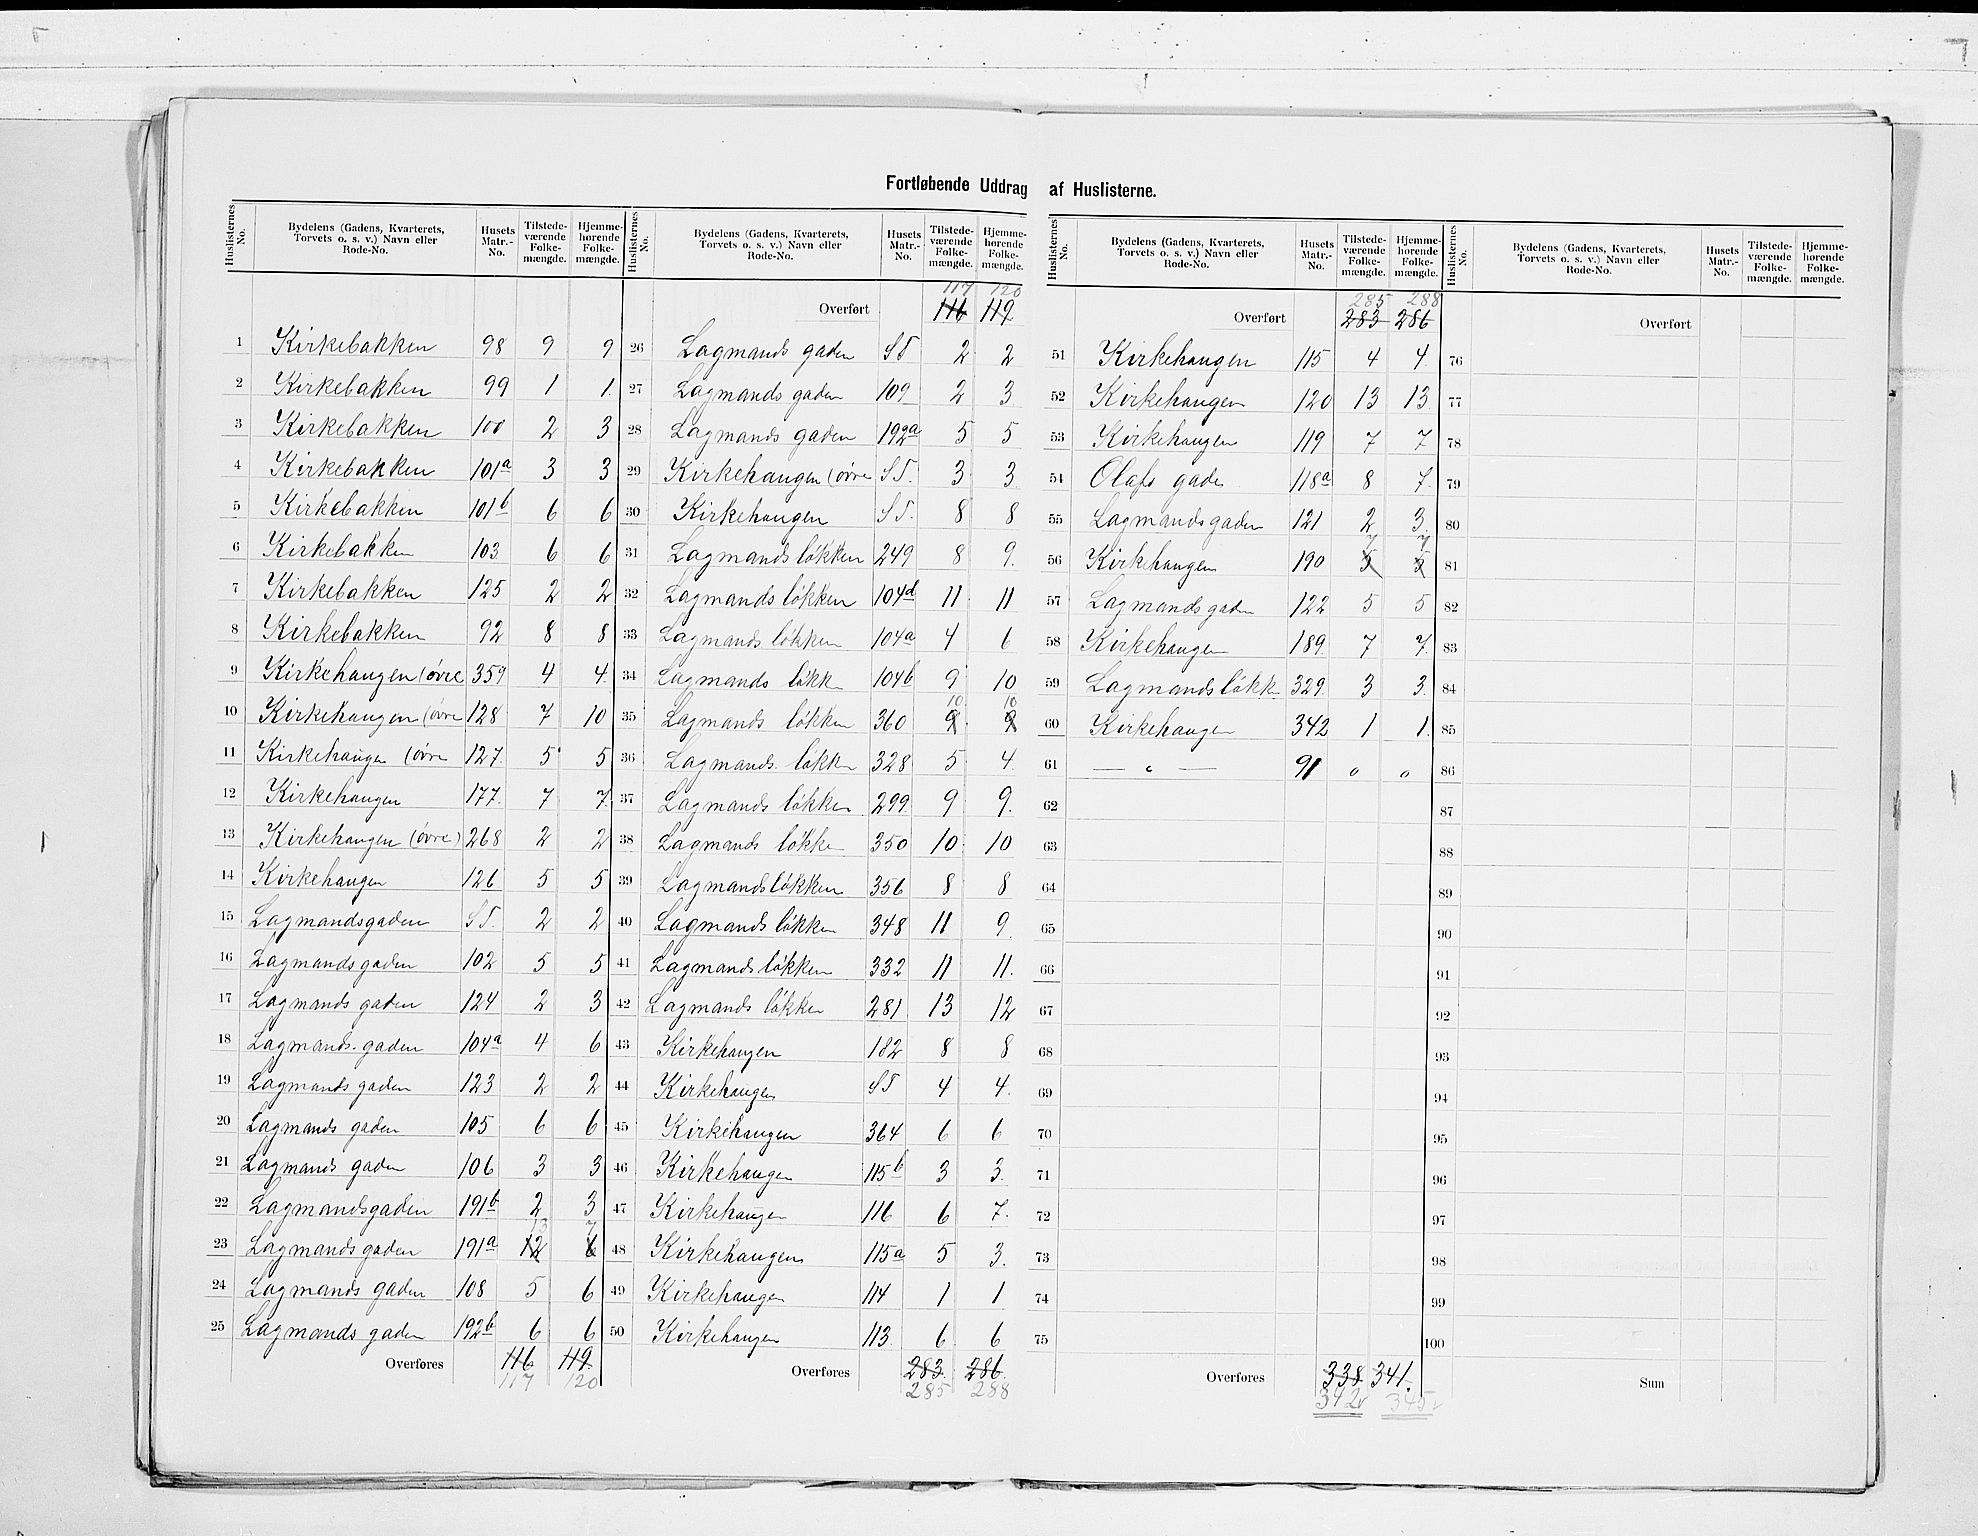 Fortløbende Uddrag af Huslisterne.
Huslisternes No. | Bydelens (Gadens, Kvarterets, Torvets o. s. v.) Navn eller Rode-No. | Husets Matr.-No. | Tilstede-værende Folke-mængde. | Hjemme-hørende Folke-mængde.
1 Kirkebakken 98 9 9
2 Kirkebakken 99 1 1.
3 Kirkebakken 100 2 3
4 Kirkebakken 101a 3 3
5 Kirkebakken 101b 6 6
6 Kirkebakken 103 6 6
7 Kirkebakken 125 2 2
8 Kirkebakken 92 8 8
9 Kirkehaugen (øvre 359 4 4.
10 Kirkehaugen (øvre 128 7 10
11 Kirkehaugen (øvre 127. 5 5
12 Kirkehaugen 177. 7 7.
13 Kirkehaugen (øvre) 268 2 2
14 Kirkehaugen 126 5 5
15 Lagmandsgaden ST. 2 2
16 Lagmands gaden 102 5 5
17 Lagmands gaden 124 2 3
18 Lagmands. gaden 104a 4 6
19 Lagmands gaden 123 2 2
20 Lagmands gaden 105 6 6
21 Lagmands gaden 106 3 3
22 Lagmandsgaden 191b 2 3
23 Lagmands gaden 191a 12 13 6 7
24 Lagmands gaden 108 5 6
25 Lagmands gaden 192b 6 6
Overføres 116 119.
117 120
Huslisternes No. | Bydelens (Gadens, Kvarterets, Torvets o. s. v.) Navn eller Rode-No. | Husets Matr.-No. | Tilstede-værende Folke-mængde. | Hjemme-hørende Folke-mængde.
117 120
Overført 116 119
26 Lagmands gaden ST 2 2
27 Lagmands gaden 109 2 3
28 Lagmands gaden 192a 5 5
29 Kirkehaugen (øvre ST. 3 3
30 Kirkehaugen ST. 8 8
31 Lagmands løkken 249 8 9.
32 Lagmands løkken 104d 11 11
33 Lagmands løkken 104a 4 6
34 Lagmands løkken 104b 9 10
35 Lagmands løkken 360 10 10
36 Lagmands. løkken 328 5 4.
37 Lagmands løkken 299 9 9.
38 Lagmands løkken 350 10 10
39 Lagmandsløkken 356 8 8
40 Lagmands løkken 348 11 9.
41 Lagmands løkken 332 11 11.
42 Lagmands løkken 281 13 12
43 Kirkehaugen 182 8 8
44 Kirkehaugen ST 4 4.
45 Kirkehaugen 364 6 6
46 Kirkehaugen 115b 3 3.
47 Kirkehaugen 116 6 7.
48 Kirkehaugen 115a 5 3.
49 Kirkehaugen 114 1 1
50 Kirkehaugen 113. 6 6
Overføres 283. 286.
285 288
Huslisternes No. | Bydelens (Gadens, Kvarterets, Torvets o. s. v.) Navn eller Rode-No. | Husets Matr.-No. | Tilstede-værende Folke-mængde. | Hjemme-hørende Folke-mængde.
285 288
Overført 283 286
51 Kirkehaugen 115 4 4.
52 Kirkehaugen 120 13 13.
53 Kirkehaugen 119 7 7
54 Olafs gade 118a 8 7.
55 Lagmandsgaden 121 2 3.
56 Kirkehaugen 190 5 7 5 7
57 Lagmands gaden 122 5 5
58 Kirkehaugen 189. 7 7.
59 Lagmandsløkk 329. 3 3.
60 Kirkehaugen 342 1 1.
61 — " — 91 0 0
62
63
64
65
66
67
68
69
70
71
72
73
74
75
Overføres 338 341.
342 345
Huslisternes No. | Bydelens (Gadens, Kvarterets, Torvets o. s. v.) Navn eller Rode-No. | Husets Matr.-No. | Tilstede-værende Folke-mængde. | Hjemme-hørende Folke-mængde.
Overført
76
77
78
79
80
81
82
83
84
85
86
87
88
89
90
91
92
93
94
95
96
97
98
99
100
Sum